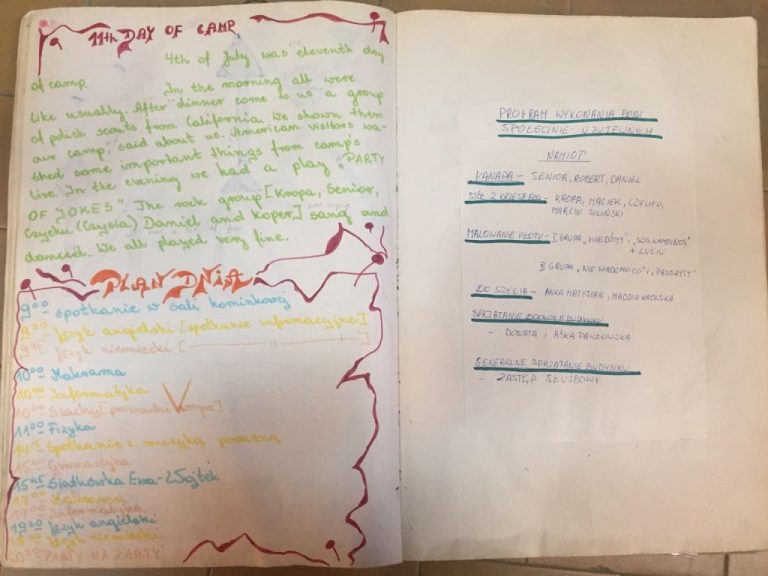 11th DAY OF CAMP
4th of July was eleventh day
of camp. In the morning all were
like usually. After dinner come to us a group
of polish scouts from California. We shown them
our camp, said about us. American visitors wa-
ched some important things from camp's
live. In the evening we had a play "PARTY
OF JOKES" The rock group [Kropa, Senior,
Czychu (Czysta) Daniel and Koper] sang and
danced. We all played very fine.
PLAN DNIA
9 00 spotkanie w sali kominkowej
9 30 język angielski [spotkanie informacyjne]
9 45 język niemiecki [ — 11 — ]
10 00 Makrama
10 00 Informatyka
10 00 Szachy [prowadzi Kropa]
11 00 Fizyka
14 15 Spotkanie z muzyką poważną
15 00 Gimnastyka
15 45 Siatkówka Ewa-Wojtek
17 00 Makrama
17 00 Informatyka
19 00 język angielski
19 00 język niemiecki
20 30 "PARTY NA ŻARTY"
PROGRAM WYKONANIA PRAC
SPOŁECZNIE - UŻYTECZNYCH
NAMIOT
KANAPA - SENIOR, ROBERT, DANIEL
STÓŁ Z KRZESŁAMI - KROPA, MACIEK, CZYCHU,
MARCIN SULIŃSKI
MALOWANIE PŁOTU - I GRUPA "WIEDŹMY", "SOS KAMPINOS"
+ LUCIU
II GRUPA "NIE WIADOMO CO" i "PASOŻYTY"
DO SZYCIA - ANKA MATYSIAK, MADZIA KROLSKA
SPRZĄTANIE DOOKOŁA BUDYNKU
- DONATA I AŚKA DAWDOWSKA
GENERALNE SPRZĄTANIE BUDYNKU
- ZASTĘP SŁUŻBOWY